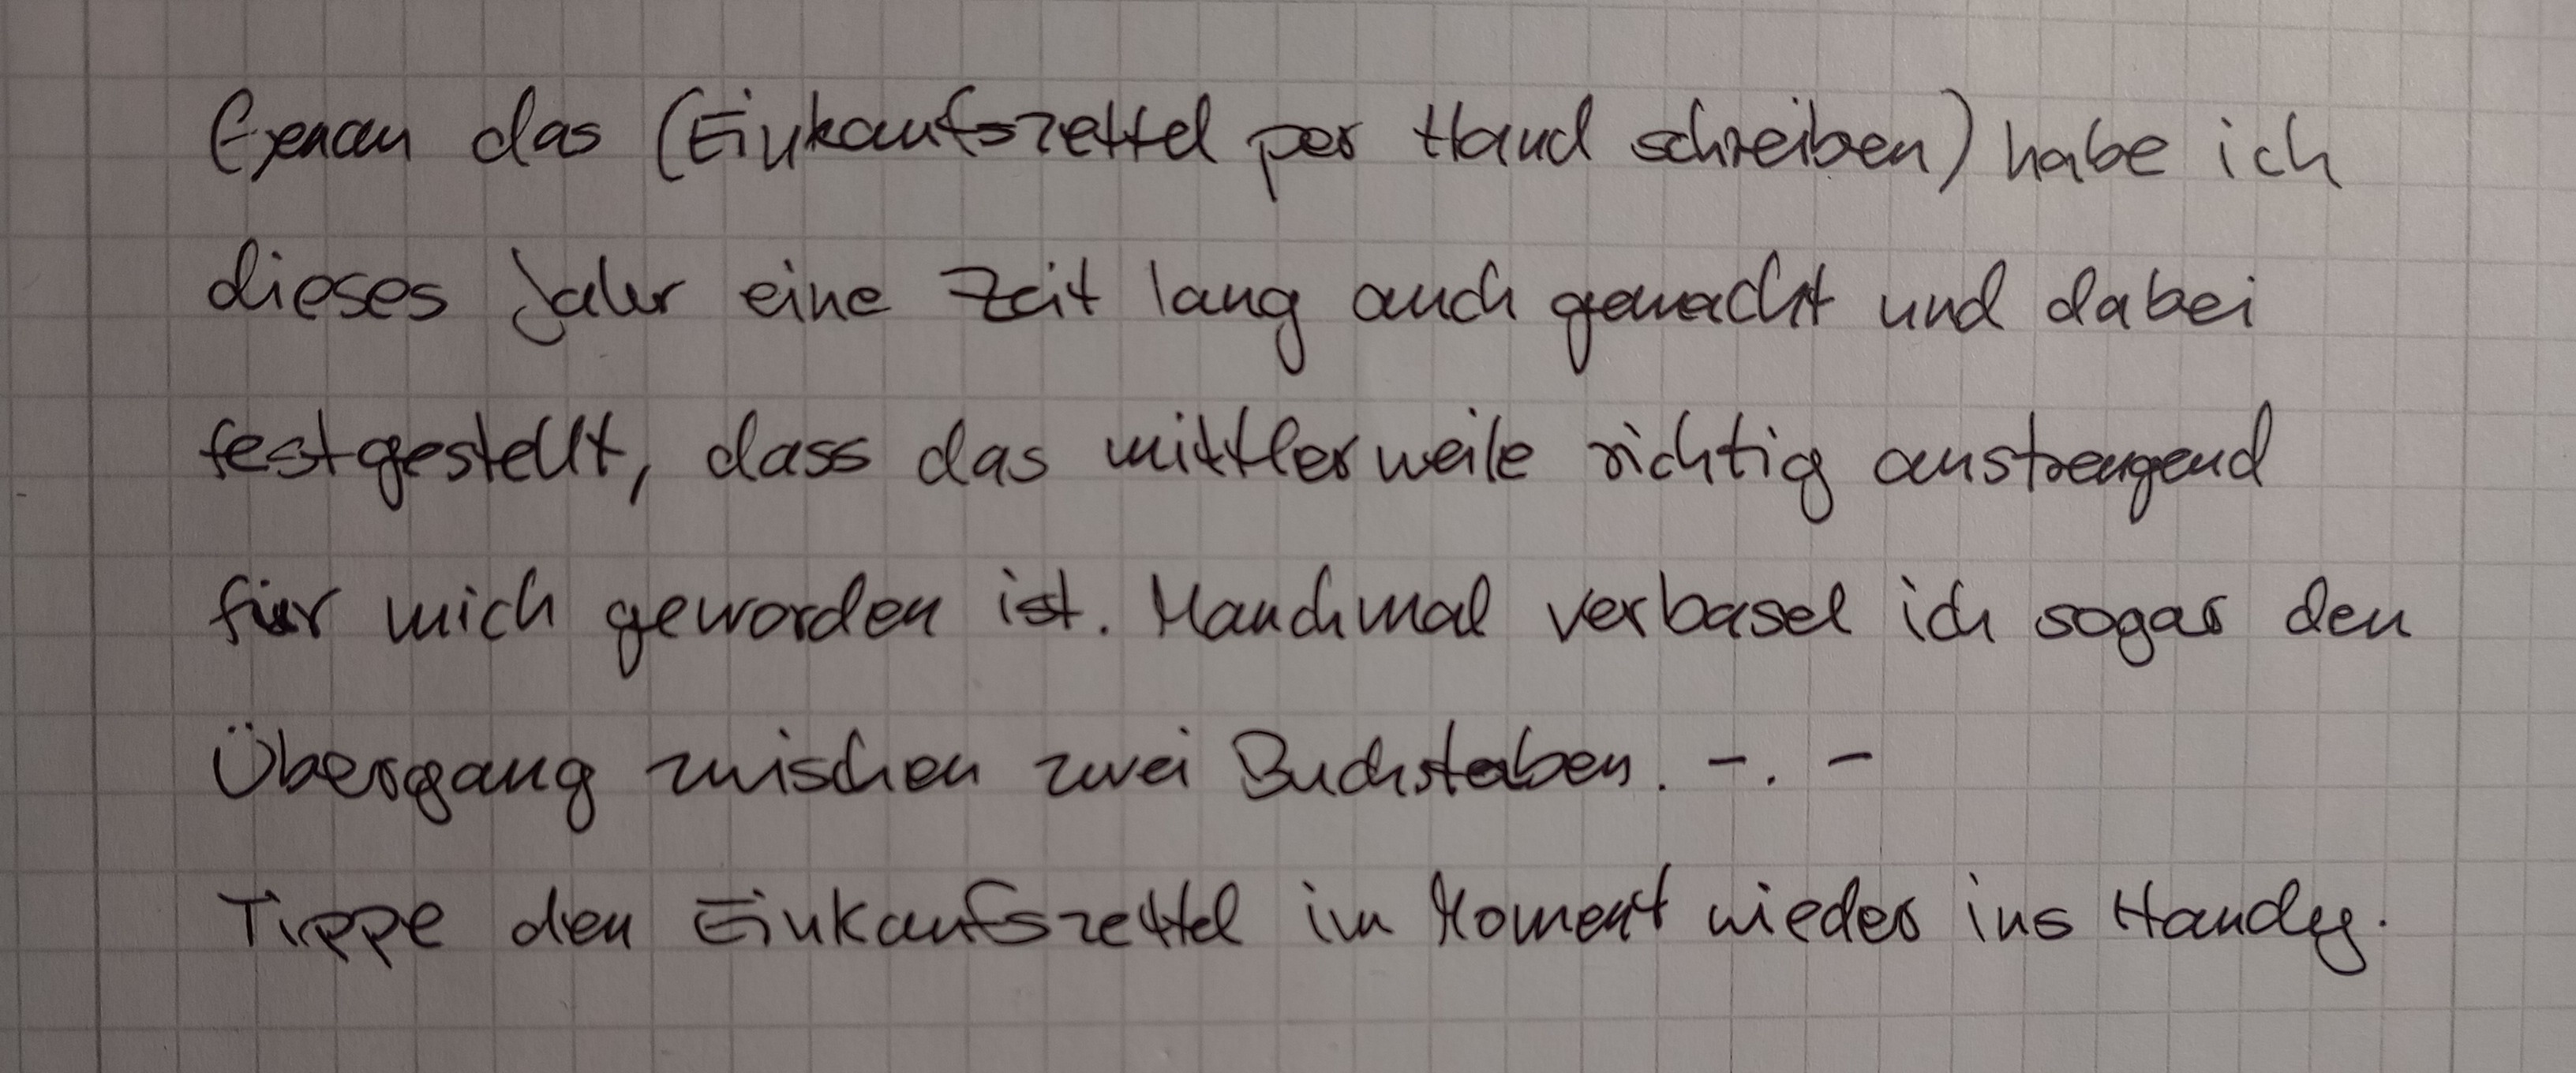 Genau das (Einkaufszettel per Hand schreiben) habe ich
dieses Jahr eine Zeit lang auch gemacht und dabei
festgestellt, dass das mittlerweile richtig anstrengend
für mich geworden ist. Manchmal verbasel ich sogar den
Übergang zwischen zwei Buchstaben. -. -
Tippe den Einkaufszettel im Moment wieder ins Handy.